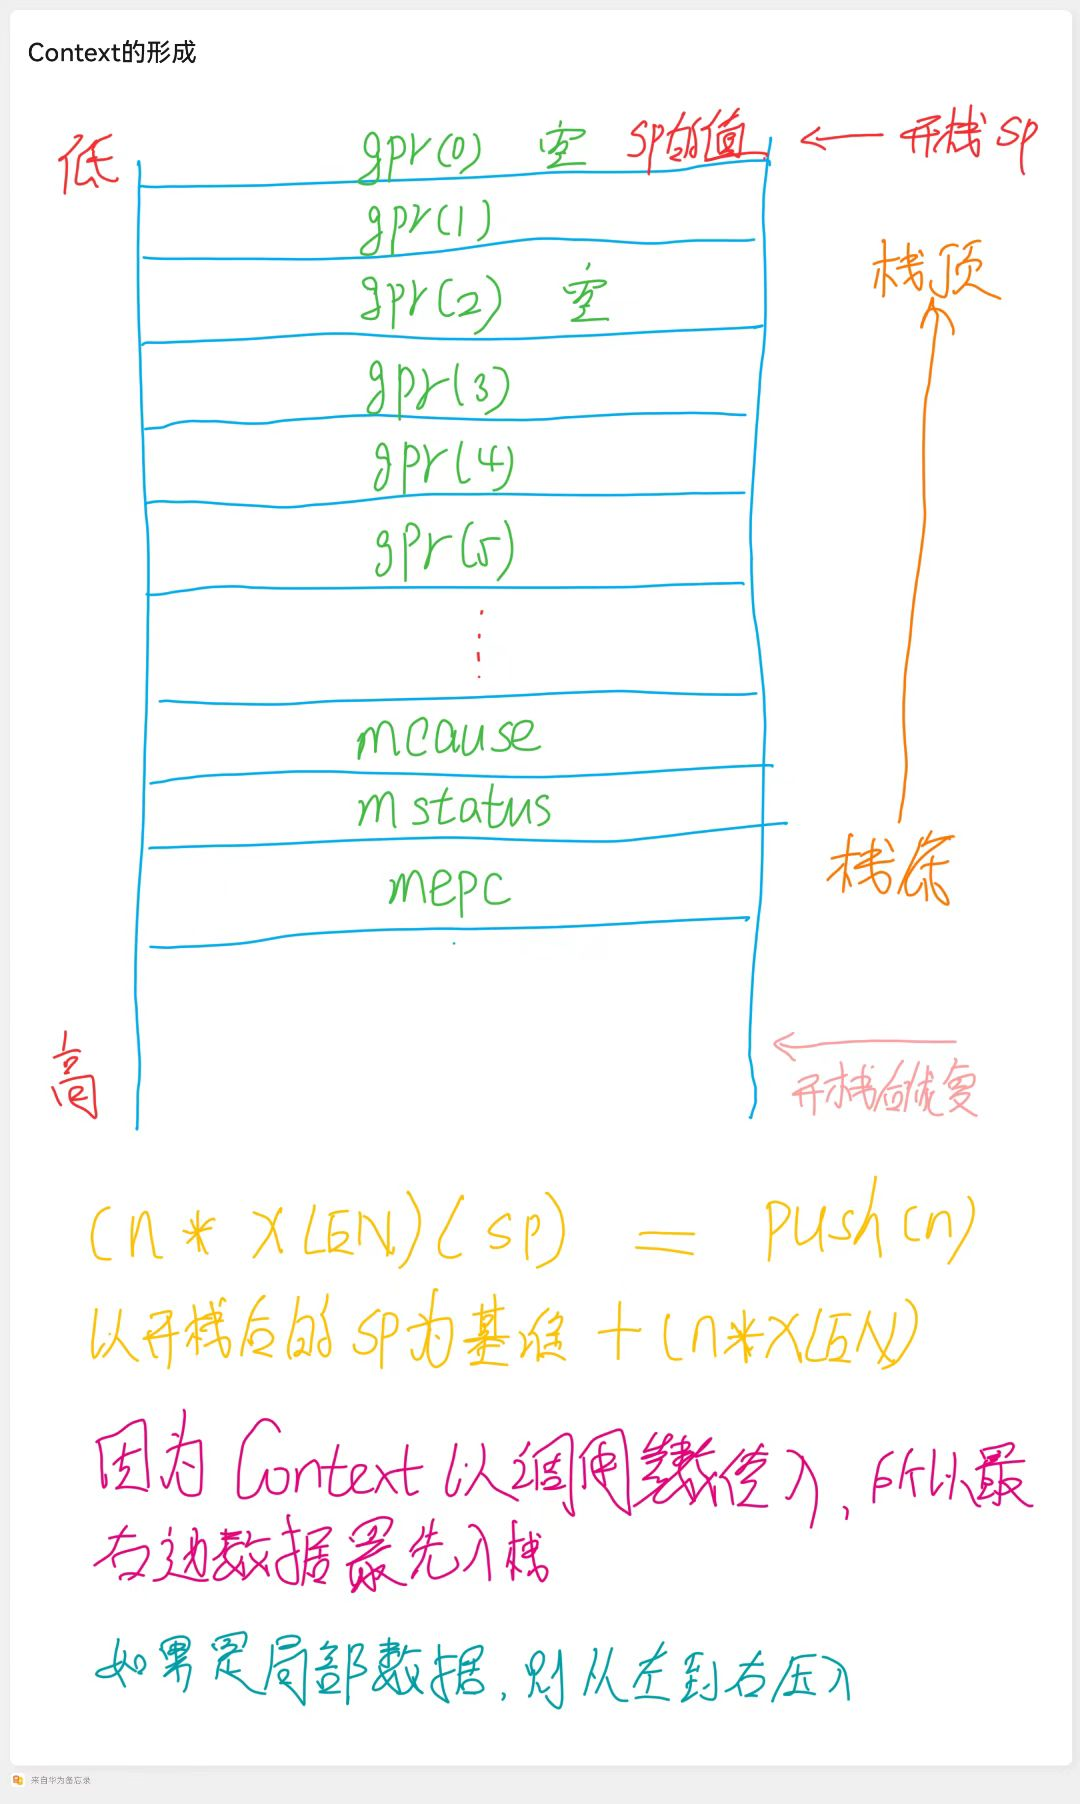 Context的形成
低
gpr(0) 空 sp的值 ← 开栈 sp
gpr(1)
栈顶
gpr(2) 空
gpr(3)
gpr(4)
gpr(5)
mcause
mstatus
mepc
栈底
高
开栈后恢复
(n * XLEN)(sp) = push(n)
以开栈后的sp为基准 + (n*XLEN)
因为 Context 以调用参数传入, 所以最
右边数据最先入栈
如果是局部数据, 则从左到右压入
来自华为备忘录